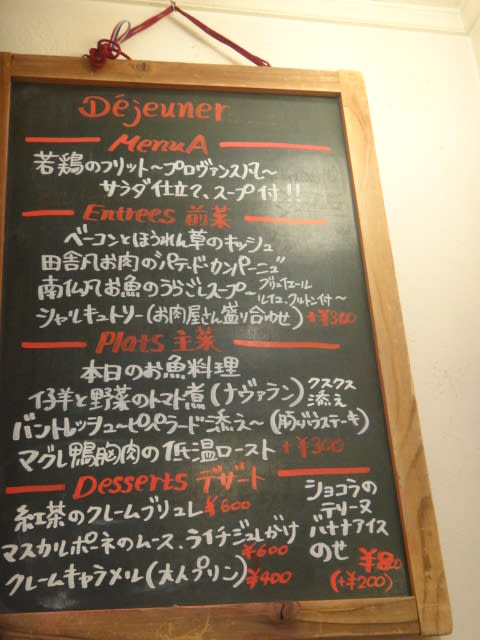 Déjeuner
Menu A
若鶏のフリット〜プロヴァンス風〜
サラダ仕立て、スープ付!!
Entrees 前菜
ベーコンとほうれん草のキッシュ
田舎風お肉のパテ・ド・カンパーニュ
南仏風お魚のうらごしスープ〜グリュイエール
ルイユ、クルトン付〜
シャルキュトリー(お肉屋さん盛り合わせ)+¥300
Plats 主菜
本日のお魚料理
仔羊と野菜のトマト煮(ナヴァラン)クスクス
添え
パントレッシュ〜ピペラード添え〜(豚バラステーキ)
マグレ鴨胸肉の低温ロースト +¥300
Desserts デザート
紅茶のクレームブリュレ ¥600
マスカルポーネのムース、ライチジュレがけ
¥600
クレームキャラメル(大人プリン)¥400
ショコラの
テリーヌ
バナナアイス
のせ ¥800
(+¥200)